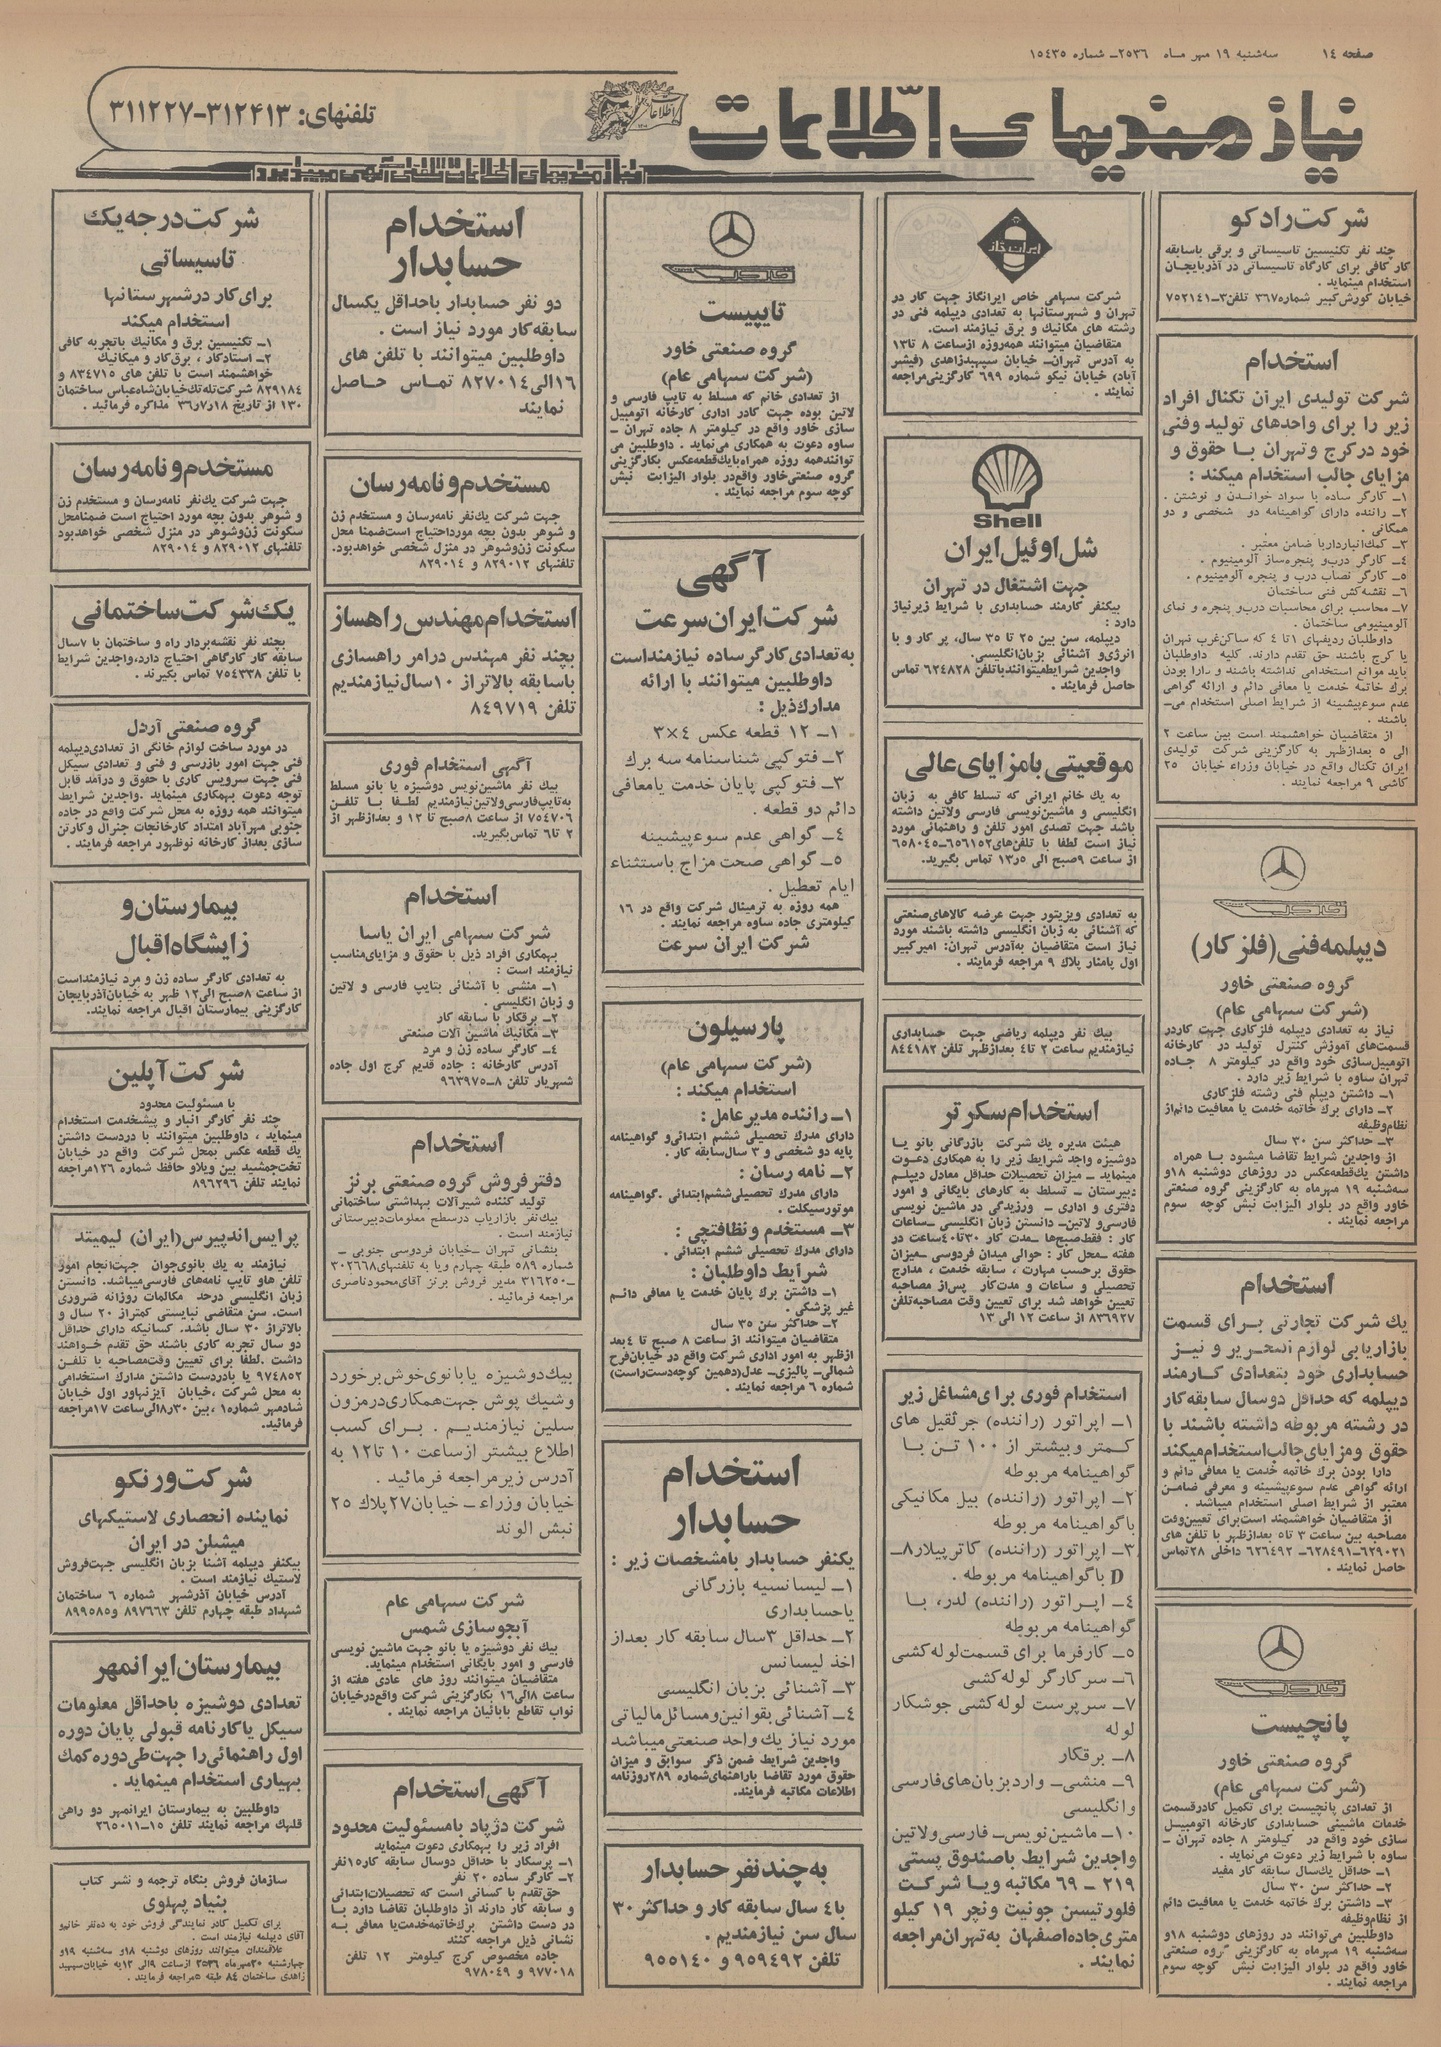 صفحه ۱٤
سه‌شنبه ۱۹ مهر ماه ۲۵۳۶ـ شماره ۱۵٤۳۵
نیازمندیهای اطلاعات
تلفنهای: ۳۱۲۴۱۳-۳۱۱۲۲۷
نیازمندیهای اطلاعات تلفنی آگهی میپذیرد
شرکت رادکو
چند نفر تکنیسین تاسیساتی و برقی باسابقه
کار کافی برای کارگاه تاسیساتی در آذربایجان
استخدام مینماید .
خیابان کورش‌کبیر شماره ۳۶۷ تلفن۳ـ۷۵۲۱٤۱
استخدام
شرکت تولیدی ایران تکنال افراد
زیر را برای واحدهای تولید وفنی
خود درکرج وتهران با حقوق و
مزایای جالب استخدام میکند :
۱ـ کارگر ساده با سواد خواندن و نوشتن .
۲ـ راننده دارای گواهینامه دو شخصی و دو
همگانی .
۳ـ کمک‌انباردار با ضامن معتبر .
٤ـ کارگر درب و پنجره‌ساز آلومینیوم .
۵ـ کارگر نصاب درب و پنجره آلومینیوم .
۶ـ نقشه‌کش فنی ساختمان
۷ـ محاسب برای محاسبات درب‌و پنجره و نمای
آلومینیومی ساختمان .
داوطلبان ردیفهای ۱ تا ٤ که ساکن‌غرب تهران
یا کرج باشند حق تقدم دارند. کلیه داوطلبان
باید موانع استخدامی نداشته باشند و دارا بودن
برك خاتمه خدمت یا معافی دائم و ارائه گواهی
عدم سوءپیشینه از شرایط اصلی استخدام می‌ـ
باشند .
از متقاضیان خواهشمند است بین ساعت ۲
الی ۵ بعدازظهر به کارگزینی شرکت تولیدی
ایران تکنال واقع در خیابان وزراء خیابان ۲۵
کاشی ۹ مراجعه نمایند .
دیپلمه‌فنی (فلزکار)
گروه صنعتی خاور
(شرکت سهامی عام)
نیاز به تعدادی دیپلمه فلزکاری جهت کاردر
قسمت‌های آموزش کنترل تولید در کارخانه
اتومبیل‌سازی خود واقع در کیلومتر ۸ جاده
تهران ساوه با شرایط زیر دارد .
۱ـ داشتن دیپلم فنی رشته فلزکاری
۲ـ دارای برك خاتمه خدمت یا معافیت دائم‌از
نظام‌وظیفه
۳ـ حداکثر سن ۳۰ سال
از واجدین شرایط تقاضا میشود با همراه
داشتن یك‌قطعه‌عکس در روزهای دوشنبه ۱۸و
سه‌شنبه ۱۹ مهرماه به کارگزینی گروه صنعتی
خاور واقع در بلوار الیزابت نبش کوچه سوم
مراجعه نمایند .
استخدام
یك شرکت تجارتی برای قسمت
بازاریابی لوازم التحریر و نیز
حسابداری خود بتعدادی کارمند
دیپلمه که حداقل دوسال سابقه کار
در رشته مربوطه داشته باشند با
حقوق ومزایای‌جالب‌استخدام‌میکند
دارا بودن برك خاتمه خدمت یا معافی دائم و
ارائه گواهی عدم سوءپیشینه و معرفی ضامن
معتبر از شرایط اصلی استخدام میباشد .
از متقاضیان خواهشمند است‌برای تعیین‌وقت
مصاحبه بین ساعت ۳ تا۵ بعدازظهر با تلفن های
۶۲۹۰۲۱ـ۶۲۸٤۹۱ـ ۶۲۶٤۹۲ داخلی ۲۸تماس
حاصل نمایند .
پانچیست
گروه صنعتی خاور
(شرکت سهامی عام)
از تعدادی پانچیست برای تکمیل کادرقسمت
خدمات ماشینی حسابداری کارخانه اتومبیل
سازی خود واقع در کیلومتر ۸ جاده تهران ـ
ساوه با شرایط زیر دعوت می‌نماید .
۱ـ حداقل یك‌سال سابقه کار مفید
۲ـ حداکثر سن ۳۰ سال
۳ـ داشتن برك خاتمه خدمت یا معافیت دائم
از نظام‌وظیفه
داوطلبین می‌توانند در روزهای دوشنبه ۱۸و
سه‌شنبه ۱۹ مهرماه به کارگزینی گروه صنعتی
خاور واقع در بلوار الیزابت نبش کوچه سوم
مراجعه نمایند .
ایران گاز
شرکت سهامی خاص ایرانگاز جهت کار در
تهران و شهرستانها به تعدادی دیپلمه فنی در
رشته های مکانیك و برق نیازمند است.
متقاضیان میتوانند همه‌روزه ازساعت ۸ تا۱۳
به آدرس تهران‌ـ خیابان سپهبدزاهدی (فیشر
آباد) خیابان نیکو شماره ۶۹۹ کارگزینی‌مراجعه
نمایند .
Shell
شل‌اوئیل ایران
جهت اشتغال در تهران
بیکنفر کارمند حسابداری با شرایط زیرنیاز
دارد :
دیپلمه، سن بین ۲۵ تا ۳۵ سال، پر کار و با
انرژی‌و آشنائی بزبان‌انگلیسی.
واجدین شرایط‌میتوانندباتلفن ۶۲٤۸۲۸ تماس
حاصل فرمایند .
موقعیتی بامزایای‌عالی
به یك خانم ایرانی که تسلط کافی به زبان
انگلیسی و ماشین‌نویسی فارسی ولاتین داشته
باشد جهت تصدی امور تلفن و راهنمائی مورد
نیاز است لطفا با تلفن‌های۶۵۶۱۵۲ـ۶۵۸۰٤۵
از ساعت ۹صبح الی ۵ر۱۳ تماس بگیرید.
به تعدادی ویزیتور جهت عرضه کالاهای‌صنعتی
که آشنائی به زبان انگلیسی داشته باشند مورد
نیاز است متقاضیان به‌آدرس تهران: امیرکبیر
اول پامنار پلاك ۹ مراجعه فرمایند .
بیك نفر دیپلمه ریاضی جهت حسابداری
نیازمندیم ساعت ۲ تا٤ بعدازظهر تلفن ۸٤٤۱۸۲
استخدام سکرتر
هیئت مدیره یك شرکت بازرگانی بانو یا
دوشیزه واجد شرایط زیر را به همکاری دعوت
مینماید ـ میزان تحصیلات حداقل معادل دیپلم
دبیرستان ـ تسلط به کارهای بایگانی و امور
دفتری و اداری ـ ورزیدگی در ماشین نویسی
فارسی‌و لاتین‌ـ دانستن زبان انگلیسی ـ‌ساعات
کار : فقط‌صبح‌ها ـ‌مدت کار ۳۰تا٤۰ساعت در
هفته ـ‌محل کار : حوالی میدان فردوسی ـ‌میزان
حقوق برحسب مهارت ، سابقه خدمت ، مدارج
تحصیلی و ساعات و مدت‌کار پس‌از مصاحبه
تعیین خواهد شد برای تعیین وقت مصاحبه‌تلفن
۸۳۶۹۲۷ از ساعت ۱۲ الی ۱۳
استخدام فوری برای‌مشاغل زیر
۱ـ اپراتور (راننده) جرثقیل های
کمتر و بیشتر از ۱۰۰ تن با
گواهینامه مربوطه
۲ـ اپراتور (راننده) بیل مکانیکی
باگواهینامه مربوطه
۳ـ اپراتور (راننده) کاترپیلار۸ـ
D باگواهینامه مربوطه .
٤ـ اپراتور (راننده) لدر، با
گواهینامه مربوطه
۵ـ کارفرما برای قسمت‌لوله‌کشی
۶ـ سرکارگر لوله‌کشی
۷ـ سرپرست لوله‌کشی جوشکار
لوله
۸ـ برقکار
۹ـ منشی‌ـ واردبزبان‌های‌فارسی
وانگلیسی
۱۰ـ ماشین‌نویس‌ـ فارسی‌ولاتین
واجدین شرایط باصندوق پستی
۲۱۹ ـ ۶۹ مکاتبه ویا شرکت
فلورتیسن جونیت ونچر ۱۹ کیلو
متری‌جاده‌اصفهان به‌تهران‌مراجعه
نمایند .
تایپیست
گروه صنعتی خاور
(شرکت سهامی عام)
از تعدادی خانم که مسلط به تایپ فارسی و
لاتین بوده جهت کادر اداری کارخانه اتومبیل
سازی خاور واقع در کیلومتر ۸ جاده تهران ـ
ساوه دعوت به همکاری می‌نماید . داوطلبین می
توانندهمه روزه همراه‌بایك‌قطعه‌عکس بکارگزینی
گروه صنعتی‌خاور واقع‌در بلوار الیزابت نبش
کوچه سوم مراجعه نمایند .
آگهی
شرکت ایران سرعت
به‌تعدادی کارگر ساده نیازمنداست
داوطلبین میتوانند با ارائه
مدارك‌ذیل :
۱ـ ۱۲ قطعه عکس ٤×۳
۲ـ فتوکپی شناسنامه سه برك
۳ـ فتوکپی پایان خدمت یامعافی
دائم دو قطعه .
٤ـ گواهی عدم سوءپیشینه
۵ـ گواهی صحت مزاج باستثناء
ایام تعطیل .
همه روزه به ترمینال شرکت واقع در ۱۶
کیلومتری جاده ساوه مراجعه نمایند .
شرکت ایران سرعت
پارسیلون
(شرکت سهامی عام)
استخدام میکند :
۱ـ راننده مدیرعامل :
دارای مدرك تحصیلی ششم ابتدائی‌و گواهینامه
پایه دو شخصی و ۳ سال‌سابقه کار .
۲ـ نامه رسان :
دارای مدرك تحصیلی‌ششم‌ابتدائی .گواهینامه
موتورسیکلت .
۳ـ مستخدم و نظافتچی :
دارای مدرك تحصیلی ششم ابتدائی .
شرایط داوطلبان :
۱ـ داشتن برك پایان خدمت یا معافی دائم
غیر پزشکی .
۲ـ حداکثر سن ۳۵ سال
متقاضیان میتوانند از ساعت ۸ صبح تا ٤بعد
ازظهر به امور اداری شرکت واقع در خیابان‌فرح
شمالی‌ـ پالیزی‌ـ عدل(دهمین کوچه‌دست‌راست)
شماره ۶ مراجعه نمایند .
استخدام
حسابدار
یکنفر حسابدار بامشخصات زیر :
۱ـ لیسانسیه بازرگانی
یاحسابداری
۲ـ حداقل ۳سال سابقه کار بعداز
اخذ لیسانس
۳ـ آشنائی بزبان انگلیسی
٤ـ آشنائی بقوانین‌ومسائل‌مالیاتی
مورد نیاز یك واحد صنعتی‌میباشد
واجدین شرایط ضمن ذکر سوابق و میزان
حقوق مورد تقاضا باراهنمای‌شماره ۲۸۹روزنامه
اطلاعات مکاتبه فرمایند.
به‌چند نفر حسابدار
با٤ سال سابقه کار و حداکثر ۳۰
سال سن نیازمندیم .
تلفن ۹۵۹٤۹۲ و ۹۵۵۱٤۰
استخدام
حسابدار
دو نفر حسابدار باحداقل یکسال
سابقه‌کار مورد نیاز است .
داوطلبین میتوانند با تلفن های
۱۶الی۸۲۷۰۱٤ تماس حاصل
نمایند
مستخدم و نامه رسان
جهت شرکت یك‌نفر نامه‌رسان و مستخدم زن
و شوهر بدون بچه مورداحتیاج است‌ضمنا محل
سکونت زن‌وشوهر در منزل شخصی خواهدبود.
تلفنهای ۸۲۹۰۱۲ و ۸۲۹۰۱٤
استخدام مهندس راهساز
بچند نفر مهندس درامر راهسازی
باسابقه بالاتراز ۱۰سال‌نیازمندیم
تلفن ۸٤۹۷۱۹
آگهی استخدام فوری
بیك نفر ماشین‌نویس دوشیزه یا بانو مسلط
به‌تایپ‌فارسی‌ولاتین‌نیازمندیم لطفا با تلفن
۷۵٤۷۰۶ از ساعت ۸صبح تا ۱۲ و بعدازظهر از
۲ تا۶ تماس‌بگیرید.
استخدام
شرکت سهامی ایران یاسا
بهمکاری افراد ذیل با حقوق و مزایای‌مناسب
نیازمند است :
۱ـ منشی با آشنائی بتایپ فارسی و لاتین
و زبان انگلیسی .
۲ـ برقکار با سابقه کار
۳ـ مکانیك ماشین آلات صنعتی
٤ـ کارگر ساده زن و مرد
آدرس کارخانه : جاده قدیم کرج اول جاده
شهریار تلفن ۸ـ۹۶۳۹۷۵
استخدام
دفتر فروش گروه صنعتی برنز
تولید کننده شیرآلات بهداشتی ساختمانی
بیك‌نفر بازاریاب درسطح معلومات‌دبیرستانی
نیازمند است .
بنشانی تهران ـ‌خیابان فردوسی جنوبی ـ
شماره ۵۸۹ طبقه چهارم ویا به تلفنهای۳۰۲۶۶۸
ـ۳۱۶۲۵۰ مدیر فروش برنز آقای‌محمودناصری
مراجعه فرمائید .
بیك‌دوشیزه یابانوی‌خوش برخورد
وشیك پوش جهت‌همکاری‌درمزون
سلین نیازمندیم . برای کسب
اطلاع بیشتر ازساعت ۱۰ تا۱۲ به
آدرس زیرمراجعه فرمائید .
خیابان وزراء ـ خیابان۲۷ پلاك ۲۵
نبش الوند
شرکت سهامی عام
آبجوسازی شمس
بیك نفر دوشیزه یا بانو جهت ماشین نویسی
فارسی و امور بایگانی استخدام مینماید.
متقاضیان میتوانند روز های عادی هفته از
ساعت ۸الی۱۶ بکارگزینی شرکت واقع‌درخیابان
نواب تقاطع باباییان مراجعه نمایند .
آگهی استخدام
شرکت دژپاد بامسئولیت محدود
افراد زیر را بهمکاری دعوت مینماید
۱ـ پرسکار با حداقل دوسال سابقه کار۱۵نفر
۲ـ کارگر ساده ۲۰ نفر
حق‌تقدم با کسانی است که تحصیلات‌ابتدائی
و سابقه کار دارند از داوطلبان تقاضا دارد با
در دست داشتن برك‌خاتمه‌خدمت‌یا معافی به
نشانی ذیل مراجعه کنند
جاده مخصوص کرج کیلومتر ۱۲ تلفن
۹۷۷۰۱۸ و ۹۷۸۰٤۹
شرکت درجه‌یك
تاسیساتی
برای‌کار درشهرستانها
استخدام میکند
۱ـ تکنیسین برق و مکانیك باتجربه کافی
۲ـ استادکار ، برق‌کار و میکانیك
خواهشمند است با تلفن های ۸۳٤۷۱۵ و
۸۲۹۱۸٤ شرکت‌تله‌تك‌خیابان‌شاه‌عباس ساختمان
۱۳۰ از تاریخ ۱۸ر۷ر۳۶ مذاکره فرمائید .
مستخدم و نامه رسان
جهت شرکت یك‌نفر نامه‌رسان و مستخدم زن
و شوهر بدون بچه مورد احتیاج است ضمنامحل
سکونت زن‌وشوهر در منزل شخصی خواهدبود
تلفنهای ۸۲۹۰۱۲ و ۸۲۹۰۱٤
یك‌شرکت‌ساختمانی
بچند نفر نقشه‌بردار راه و ساختمان با ۷سال
سابقه کار کارگاهی احتیاج دارد،واجدین شرایط
با تلفن ۷۵٤۳۳۸ تماس بگیرند .
گروه صنعتی آردل
در مورد ساخت لوازم خانگی از تعدادی‌دیپلمه
فنی جهت امور بازرسی و فنی و تعدادی سیکل
فنی جهت سرویس کاری با حقوق و درآمد قابل
توجه دعوت بهمکاری مینماید .واجدین شرایط
میتوانند همه روزه به محل شرکت واقع در جاده
جنوبی مهرآباد امتداد کارخانجات جنرال وکارتن
سازی بعداز کارخانه نوظهور مراجعه فرمایند .
بیمارستان و
زایشگاه‌اقبال
به تعدادی کارگر ساده زن و مرد نیازمنداست
از ساعت ۸صبح الی۱۲ ظهر به خیابان‌آذربایجان
کارگزینی بیمارستان اقبال مراجعه نمایند.
شرکت آپلین
با مسئولیت محدود
چند نفر کارگر انبار و پیشخدمت استخدام
مینماید ، داوطلبین میتوانند با دردست داشتن
یك قطعه عکس بمحل شرکت واقع در خیابان
تخت‌جمشید بین ویلاو حافظ شماره ۱۲۶مراجعه
نمایند تلفن ۸۹۶۲۹۶
پرایس‌اندپیرس(ایران) لیمیتد
نیازمند به یك بانوی‌جوان جهت‌انجام امور
تلفن هاو تایپ نامه‌های فارسی‌میباشد. دانستن
زبان انگلیسی درحد مکالمات روزانه ضروری
است. سن متقاضی نبایستی کمتراز ۲۰ سال و
بالاتراز ۳۰ سال باشد. کسانیکه دارای حداقل
دو سال تجربه کاری باشند حق تقدم خواهند
داشت .لطفا برای تعیین وقت‌مصاحبه با تلفن
۹۷٤۸۵۲ یا بادردست داشتن مدارك استخدامی
به محل شرکت ،خیابان آیزنهاور اول خیابان
شادمهر شماره۱ ،بین ۳۰ر۸الی‌ساعت ۱۷مراجعه
فرمائید.
شرکت ورنکو
نماینده انحصاری لاستیکهای
میشلن در ایران
بیکنفر دیپلمه آشنا بزبان انگلیسی جهت‌فروش
لاستیك نیازمند است .
آدرس خیابان آذرشهر شماره ۶ ساختمان
شهداد طبقه چهارم تلفن ۸۹۷۶۶۳ و۸۹۹۵۸۵
بیمارستان ایرانمهر
تعدادی دوشیزه باحداقل معلومات
سیکل یاکارنامه قبولی پایان دوره
اول راهنمائی‌را جهت‌طی‌دوره‌کمك
بهیاری استخدام مینماید .
داوطلبین به بیمارستان ایرانمهر دو راهی
قلهك مراجعه نمایند تلفن ۱۵ـ۲۶۵۰۱۱
سازمان فروش بنگاه ترجمه و نشر کتاب
بنیاد پهلوی
برای تکمیل کادر نمایندگی فروش خود به ده‌نفر خانم‌و
آقای دیپلمه نیازمند است .
علاقمندان میتوانند روزهای دوشنبه ۱۸و سه‌شنبه ۱۹و
چهارشنبه ۲۰مهرماه ۲۵۳۶ ازساعت ۹الی ۱۲به خیابان‌سپهبد
زاهدی ساختمان ۸٤ طبقه ۵مراجعه فرمایند .